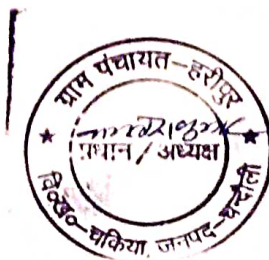 ग्राम पंचायत-हरीपुर
प्रधान / अध्यक्ष
वि०ख०-चकिया, जनपद-चन्दौली